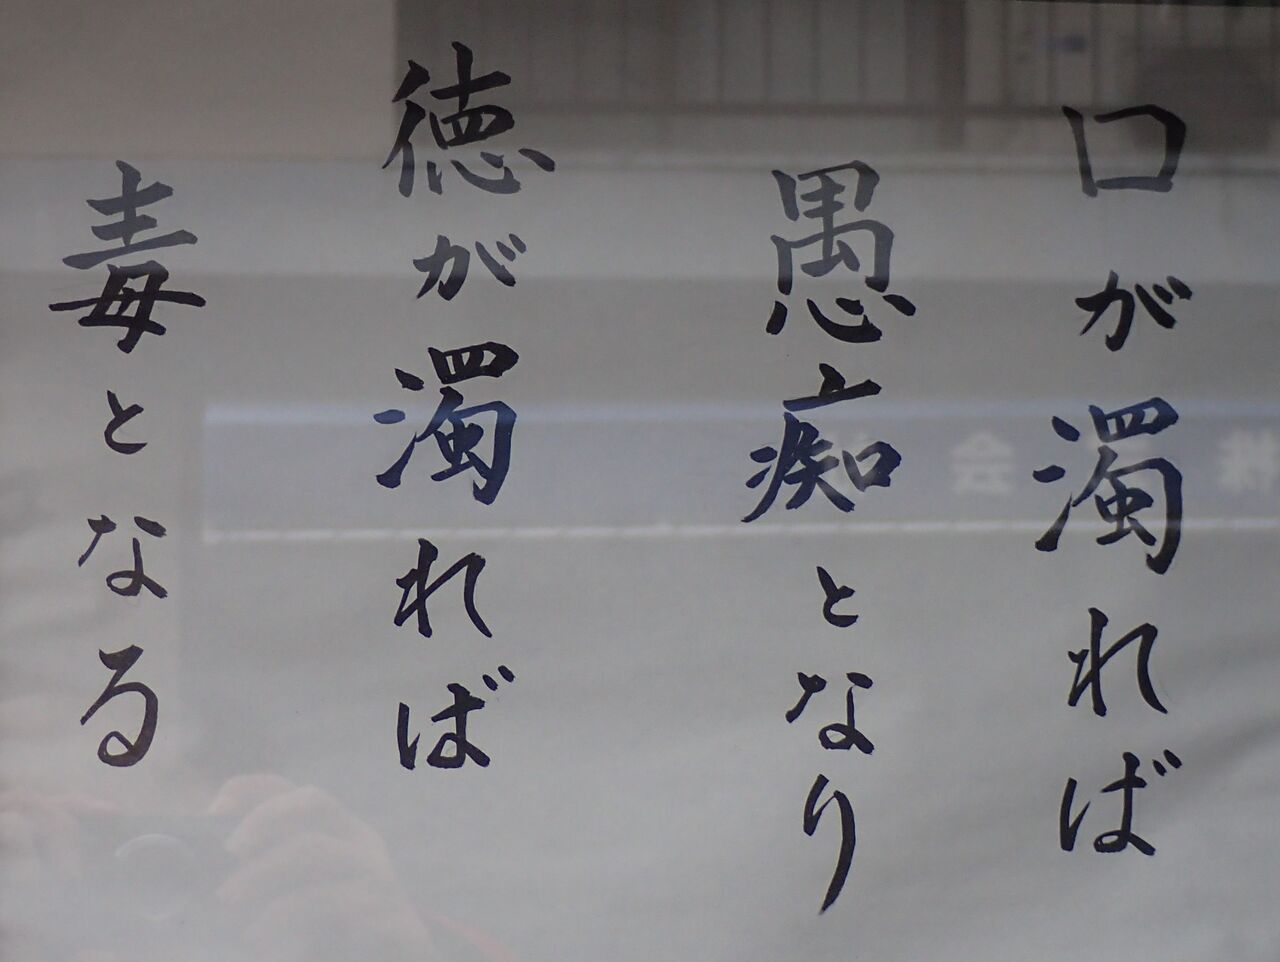 口が濁れば
愚痴となり
徳が濁れば
毒となる
会